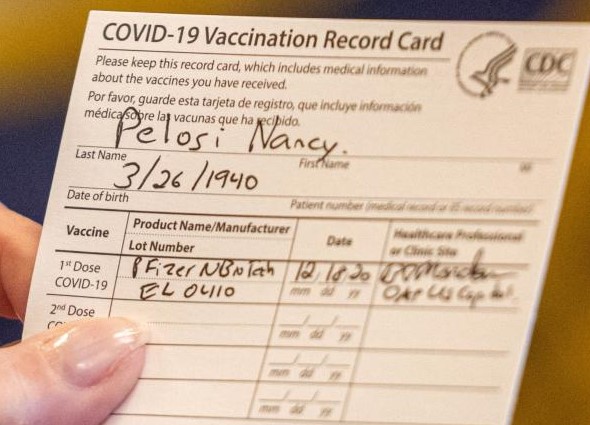 COVID-19 Vaccination Record Card
CDC
Please keep this record card, which includes medical information
about the vaccines you have received.
Por favor, guarde esta tarjeta de registro, que incluye información
médica sobre las vacunas que ha recibido.
Pelosi Nancy.
Last Name First Name
3/26/1940
Date of birth Patient number (medical record or IIS record number)
Vaccine Product Name/Manufacturer Date Healthcare Professional
Lot Number or Clinic Site
1st Dose PFizer NBnTeh 12/18/20
COVID-19 EL 0410 mm dd yy OAP US Cap
2nd Dose
mm dd yy
mm dd yy
mm dd yy